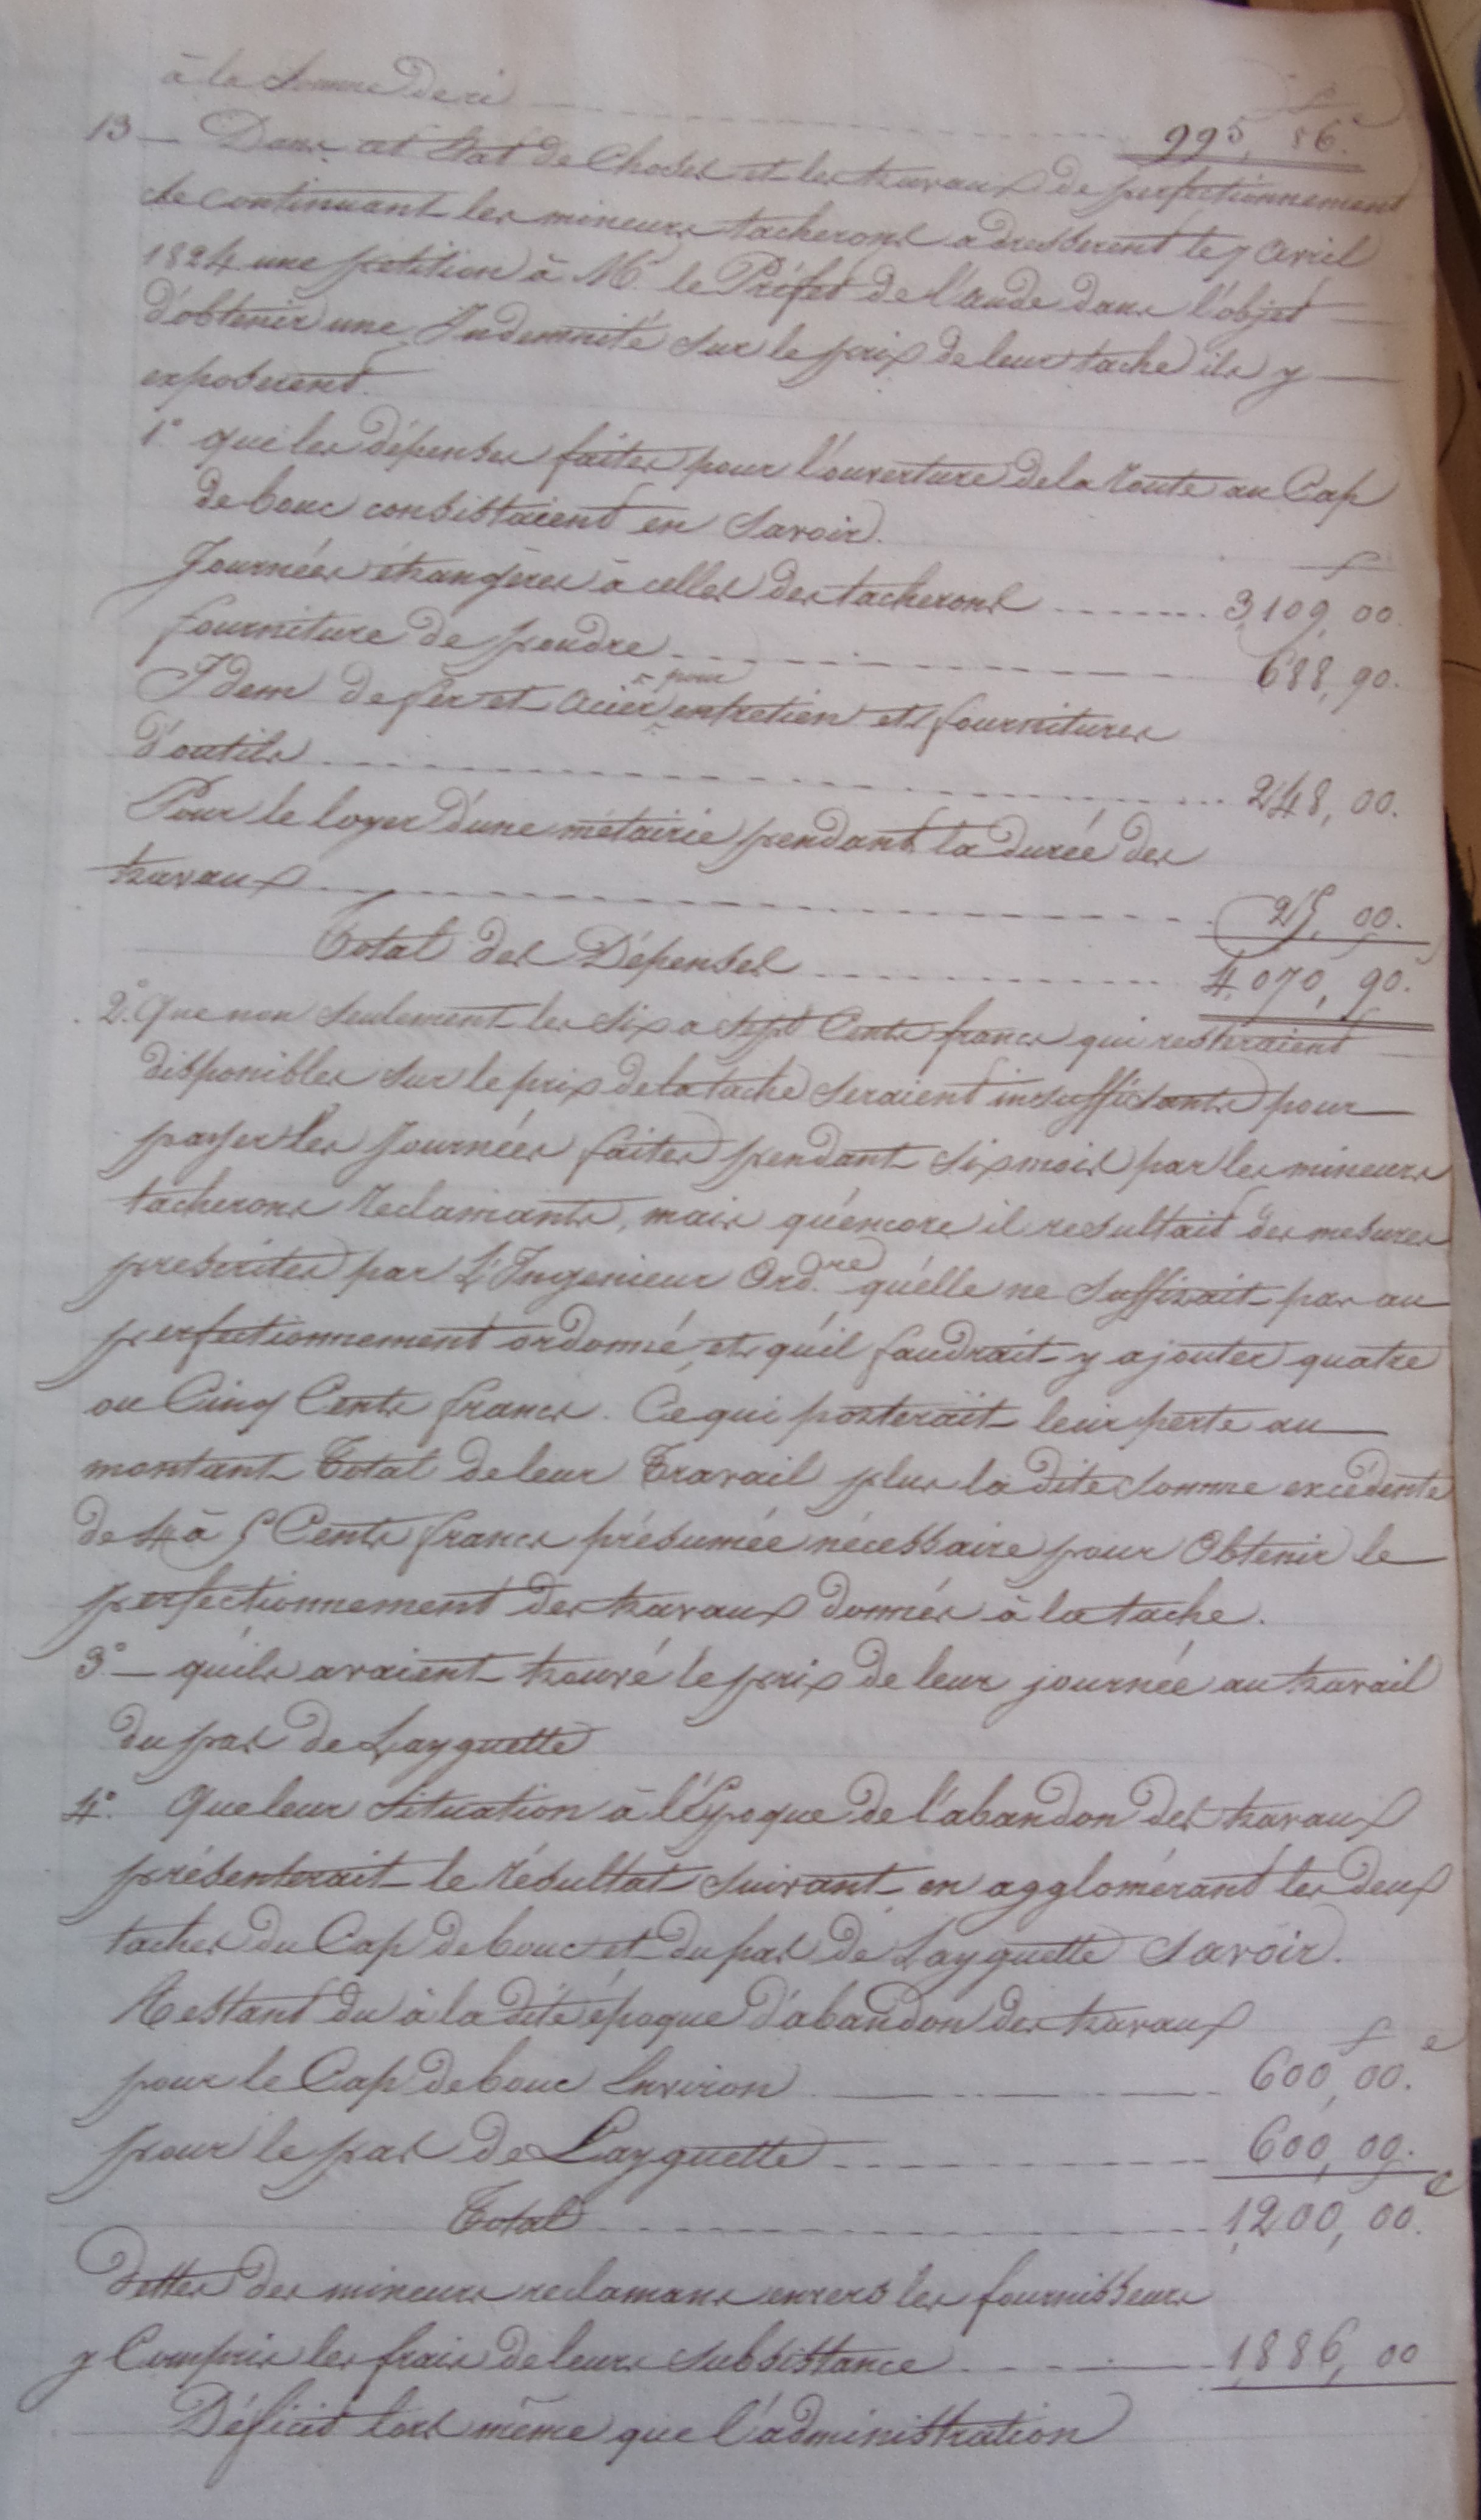 à la Somme de ci ............ 995, 86.
13 — Dans cet état de Choses et les travaux de perfectionnement
se continuant les mineurs tacherons adresserent le 7 avril
1824 une petition à Mr. le Préfet de l'aude dans l'objet
d'obtenir une Indemnité sur le prix de leur tache ils y
exposerent.
1.° que les dépenses faites pour l'ouverture de la Route au Cap
de bouc consistaient en Savoir.
f
Journées étrangères à celles des tacherons ........ 3,109, 00.
fourniture de poudre ............ 688, 90.
pour
Idem de fer et acier entretien et fournitures
d'outils ............ 248, 00.
Pour le loyer d'une métairie pendant la durée des
travaux ............ 25, 00.
Total des Dépenses ............ 4,070, 90.
2.° Que non seulement les six a sept Cents francs qui resteraient
disponibles sur le prix de la tache seraient insuffisants pour
payer les Journées faites pendant six mois par les mineurs
tacherons reclamants, mais qu'encore il resultait des mesures
prescrites par L'Ingenieur Ord.re qu'elle ne suffisait pas au
perfectionnement ordonné, et qu'il faudrait y ajouter quatre
ou Cinq Cents francs. Ce qui porterait leur perte au
montant Total de leur Travail plus la dite somme excédente
de 4 à 5 Cents francs présumée nécessaire pour obtenir le
perfectionnement des travaux donnés à la tache.
3.° — qu'ils avaient trouvé le prix de leur journée au travail
du pas de Layguette
4.° Que leur situation à l'Époque de l'abandon des travaux
présenterait le résultat suivant en agglomérant les deux
taches du Cap de bouc et du pas de Layguette Savoir.
Restant du à la dite époque d'abandon des travaux
f c
pour le Cap de bouc Environ ............ 600, 00.
pour le pas de Layguette ............ 600, 00.
Total ............ 1,200, 00.c
Dettes des mineurs reclamans envers les fournisseurs
y Compris les frais de leurs subsistance ............ 1,886, 00
Déficit lors même que l'administration